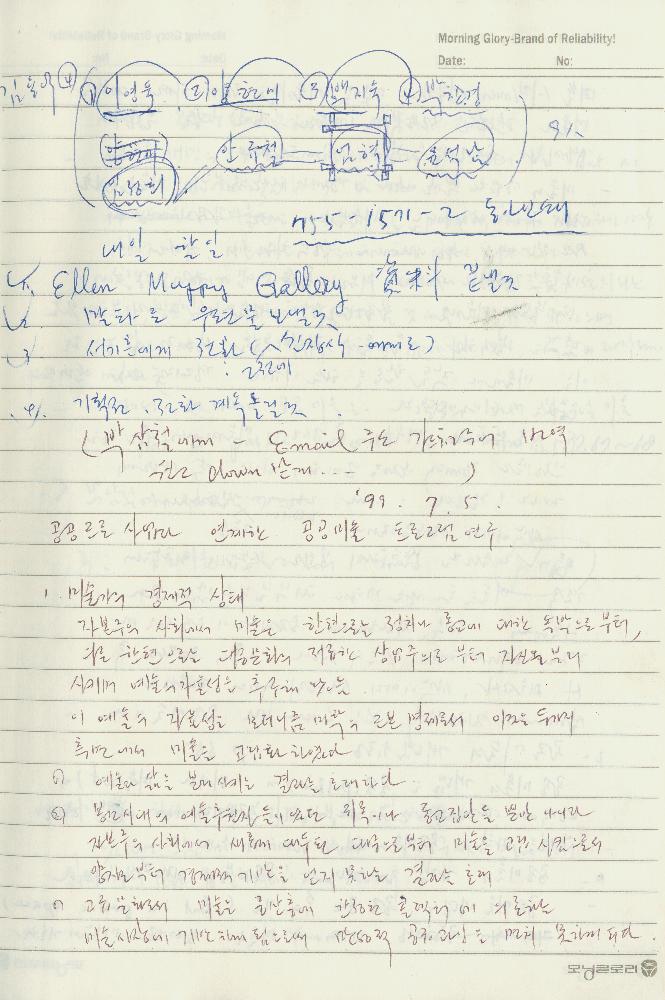 Morning Glory-Brand of Reliability!
Date: No:
① 이영욱 ② 이 ③ 백지숙 ④ 박찬경
안규철 엄혁 윤석남
임옥희
755-1571-2
내일 할 일
1. Ellen Muppy Gallery 資料 보낼것
2. 로 우편물 보낼것
3. 서기흔에게 전화
오전에
4. 기획전 전화 계속 돌릴것
(박삼철에게 - Email 주소 가르쳐주어 번역
원고 down 받게...)
'99. 7. 5.
공공근로 사업과 연계한 공공미술 프로그램 연구
1. 미술가의 경제적 상태
자본주의 사회에서 미술은 한편으로는 정치나 종교에 대한 속박으로부터,
다른 한편으로는 대중문화의 저급한 상업주의로부터 자신을 분리
시키며 예술의 자율성을 추구해 왔는
이 예술의 자율성은 모더니즘 미학의 근본 명제로서 이것은 두가지
측면에서 미술을 고립화 하였다
① 예술과 삶을 분리시키는 결과를 초래하다
② 봉건시대의 예술후원자들이었던 귀족이나 종교집단들 뿐만 아니라
자본주의 사회에서 새롭게 대두된 대중으로부터 미술을 고립시킴으로써
양자로부터 경제적 기반을 얻지 못하는 결과를 초래
③ 고급문화로서 미술은 자산층에 한정된 콜렉터에 의존하는
미술시장에 기반하게 됨으로써 만성적 공급과잉을 면치 못하게 되다.
모닝글로리